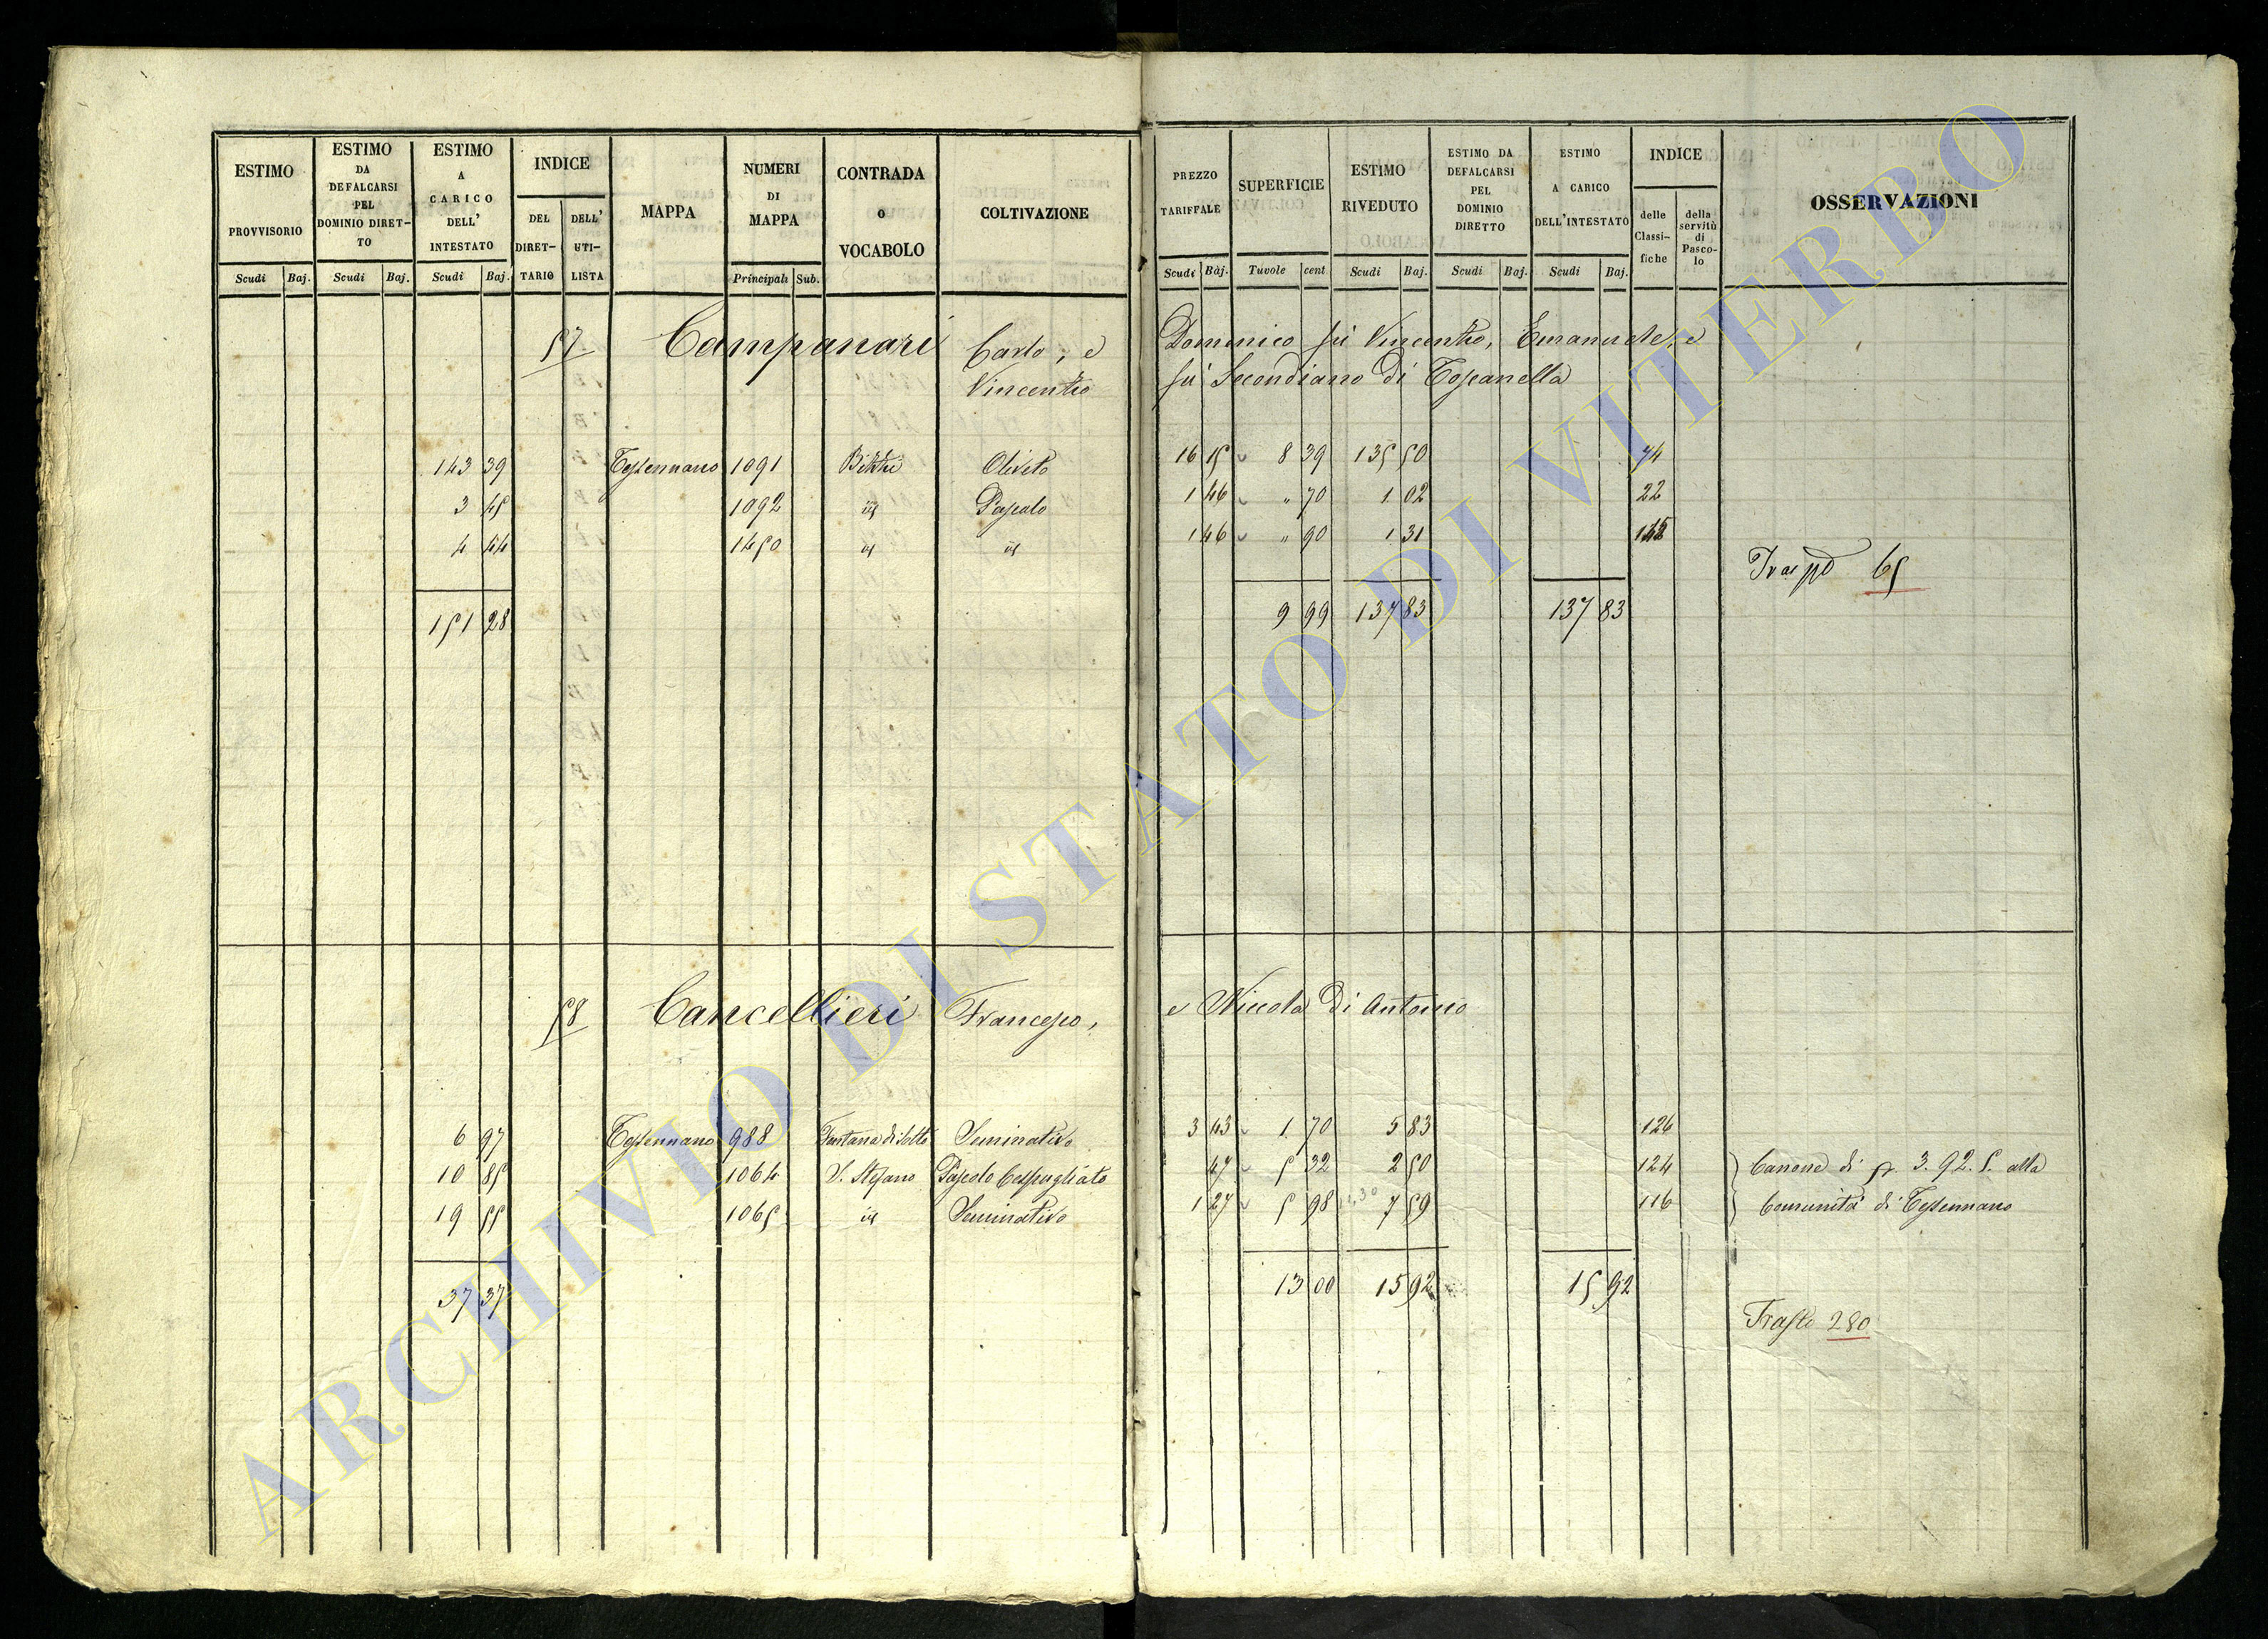 ESTIMO PROVVISORIO
Scudi Baj.
ESTIMO DA DEFALCARSI PEL DOMINIO DIRET- TO
Scudi Baj.
ESTIMO A CARICO DELL' INTESTATO
Scudi Baj.
INDICE
DEL DIRET- TARIO
DELL' UTI- LISTA
MAPPA
NUMERI DI MAPPA
Principali Sub.
CONTRADA O VOCABOLO
COLTIVAZIONE
PREZZO TARIFFALE
Scudi Baj.
SUPERFICIE
Tavole cent
ESTIMO RIVEDUTO
Scudi Baj.
ESTIMO DA DEFALCARSI PEL DOMINIO DIRETTO
Scudi Baj.
ESTIMO A CARICO DELL'INTESTATO
Scudi Baj.
INDICE
delle Classi- fiche
della servitù di Pasco- lo
OSSERVAZIONI
57 Campanari Carlo, e Domenico fù Vincenzo, Emanuele, e
Vincenzo fù Secondiano di Toscanella
143 39 Tessennano 1091 Oliveto 16 15 8 39 135 50 74
3 45 1092 id Pascolo 1 46 " 70 1 02 22
4 44 1450 id id 1 46 " 90 1 31
151 28 9 99 137 83 137 83
65
58 Cancellieri Francesco, e Niccola di Antonio
6 97 Tessennano 988 Fontana di Sotto Seminativo 3 43 1 70 5 83 126
10 85 1064 S. Stefano Pascolo Cespugliato 47 5 32 2 50 124 Canone di 3. 92. 5. alla
19 55 1065 id Seminativo 1 27 5 98 7 59 116 Comunità di Tessennano
37 37 13 00 15 92 15 92
Trasto 280
ARCHIVIO DI STATO DI VITERBO